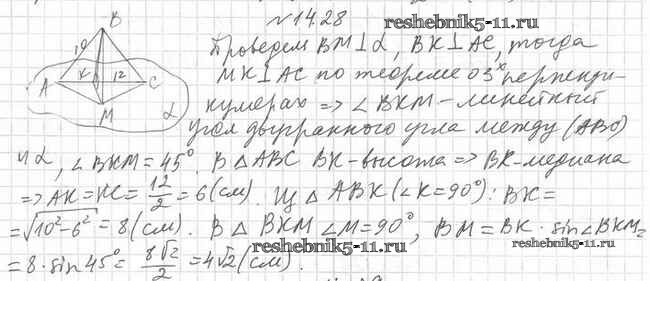 № 14.28
reshebnik5-11.ru
Проведем BM⊥α, BK⊥AC, тогда
MK⊥AC по теореме о 3х перпенди-
кулярах => ∠BKM - линейный
угол двугранного угла между (ABC)
и α, ∠BKM = 45°. В △ABC BK - высота => BK - медиана
=> AK = KC = 12/2 = 6 (см). Из △ABK (∠K = 90°): BK =
= √10² - 6² = 8 (см). В △BKM ∠M = 90°, BM = BK · sin∠BKM =
reshebnik5-11.ru
reshebnik5-11.ru
= 8 · sin 45° = 8√2/2 = 4√2 (см).
B
10
K
12
A
C
M
α